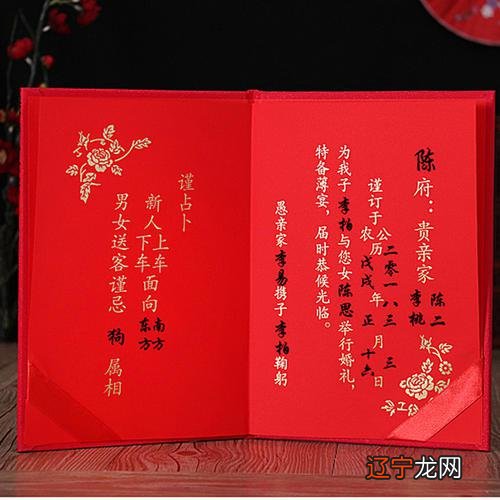 陈府：贵亲家 陈二 李桃
谨订于公农历二零一八戊戌年三正月三十六日
为我子李柏与您女陈思举行婚礼，
特备薄宴，届时恭候光临。
愚亲家李易携子李柏鞠躬
谨占卜
新人上车下车面向南方东方
男女送客谨忌狗属相
辽宁龙网